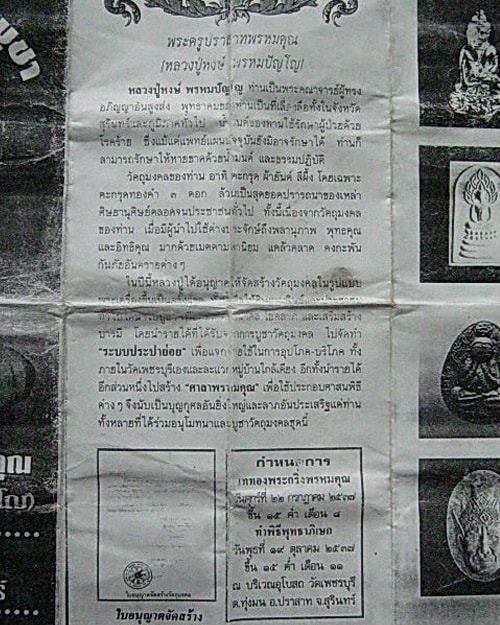 พระครูปราสาทพรหมคุณ
(หลวงปู่หงษ์ พรหมปัญโญ)
หลวงปู่หงษ์ พรหมปัญโญ ท่านเป็นพระคณาจารย์ผู้ทรง
อภิญญาอันสูงส่ง พุทธาคมของท่านเป็นที่เลื่องลือทั้งในจังหวัด
สุรินทร์และภูมิภาคทั่วไป น้ำมนต์ของท่านใช้รักษาผู้ป่วยด้วย
โรคร้าย ซึ่งแม้แต่แพทย์แผนปัจจุบันยังมิอาจรักษาได้ ท่านก็
สามารถรักษาให้หายขาดด้วยน้ำมนต์ และธรรมปฏิบัติ
วัตถุมงคลของท่าน อาทิ ตะกรุด ผ้ายันต์ สีผึ้ง โดยเฉพาะ
ตะกรุดทองคำ ๓ ดอก ล้วนเป็นสุดยอดปรารถนาของเหล่า
ศิษยานุศิษย์ตลอดจนประชาชนทั่วไป ทั้งนี้เนื่องจากวัตถุมงคล
ของท่าน เมื่อมีผู้นำไปใช้ต่างประจักษ์ถึงพลานุภาพ พุทธคุณ
และอิทธิคุณ มากด้วยเมตตามหานิยม แคล้วคลาด คงกะพัน
กันภัยอันตรายต่างๆ
ในปีนี้หลวงปู่ได้อนุญาตให้จัดสร้างวัตถุมงคลในรูปแบบ
และเสริมสร้าง
บารมี โดยนำรายได้ที่ได้รับจากการบูชาวัตถุมงคล ไปจัดทำ
"ระบบประปาย่อย" เพื่อแจกจ่ายใช้ในการอุปโภค-บริโภค ทั้ง
ภายในวัดเพชรบุรีเองและละแวกหมู่บ้านใกล้เคียง อีกทั้งนำรายได้
อีกส่วนหนึ่งไปสร้าง "ศาลาพรหมคุณ" เพื่อใช้ประกอบศาสนพิธี
ต่างๆ จึงนับเป็นบุญกุศลอันยิ่งใหญ่และลาภอันประเสริฐแด่ท่าน
ทั้งหลายที่ได้ร่วมอนุโมทนาและบูชาวัตถุมงคลชุดนี้
กำหนดการ
เททองพระกริ่งพรหมคุณ
วันศุกร์ที่ ๒๒ กรกฎาคม ๒๕๓๗
ขึ้น ๑๕ ค่ำ เดือน ๘
ทำพิธีพุทธาภิเษก
วันพุธที่ ๑๙ ตุลาคม ๒๕๓๗
ขึ้น ๑๕ ค่ำ เดือน ๑๑
ณ บริเวณอุโบสถ วัดเพชรบุรี
ต.ทุ่งมน อ.ปราสาท จ.สุรินทร์
ใบอนุญาตจัดสร้างวัตถุมงคล
ใบอนุญาตจัดสร้าง